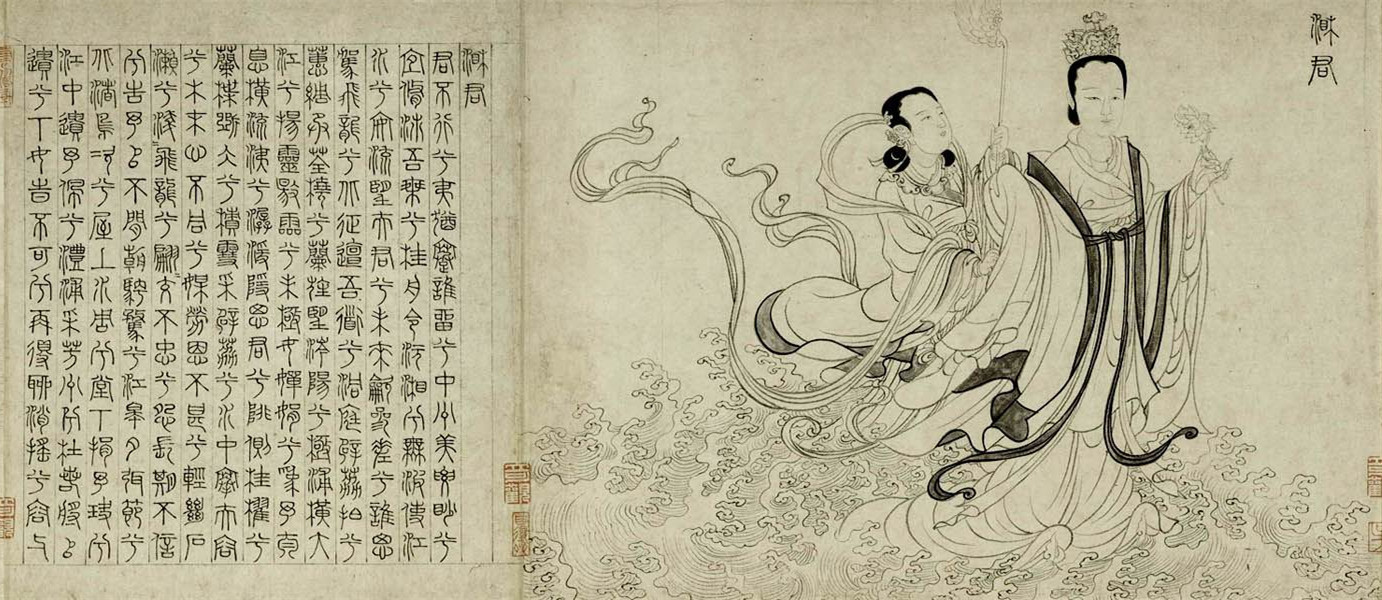 湘君
湘君
君不行兮夷猶蹇誰留兮中州美要眇兮
宜脩沛吾乘兮桂舟令沅湘兮無波使江
水兮安流望夫君兮未來龡參差兮誰思
駕飛龍兮北征邅吾道兮洞庭薜荔拍兮
蕙綢承荃橈兮蘭旌望涔陽兮極浦橫大
江兮揚靈揚靈兮未極女嬋媛兮為予太
息橫流涕兮潺湲隱思君兮陫側桂櫂兮
蘭枻斲冰兮積雪采薜荔兮水中搴芙蓉
兮木末心不同兮媒勞恩不甚兮輕絕石
瀨兮淺淺飛龍兮翩翩交不忠兮怨長期不信
兮告予以不閒朝騁騖兮江皋夕弭節兮
北渚鳥次兮屋上水周兮堂下捐予玦兮
江中遺予佩兮澧浦采芳洲兮杜若將以
遺兮下女旹不可兮再得聊逍遙兮容與